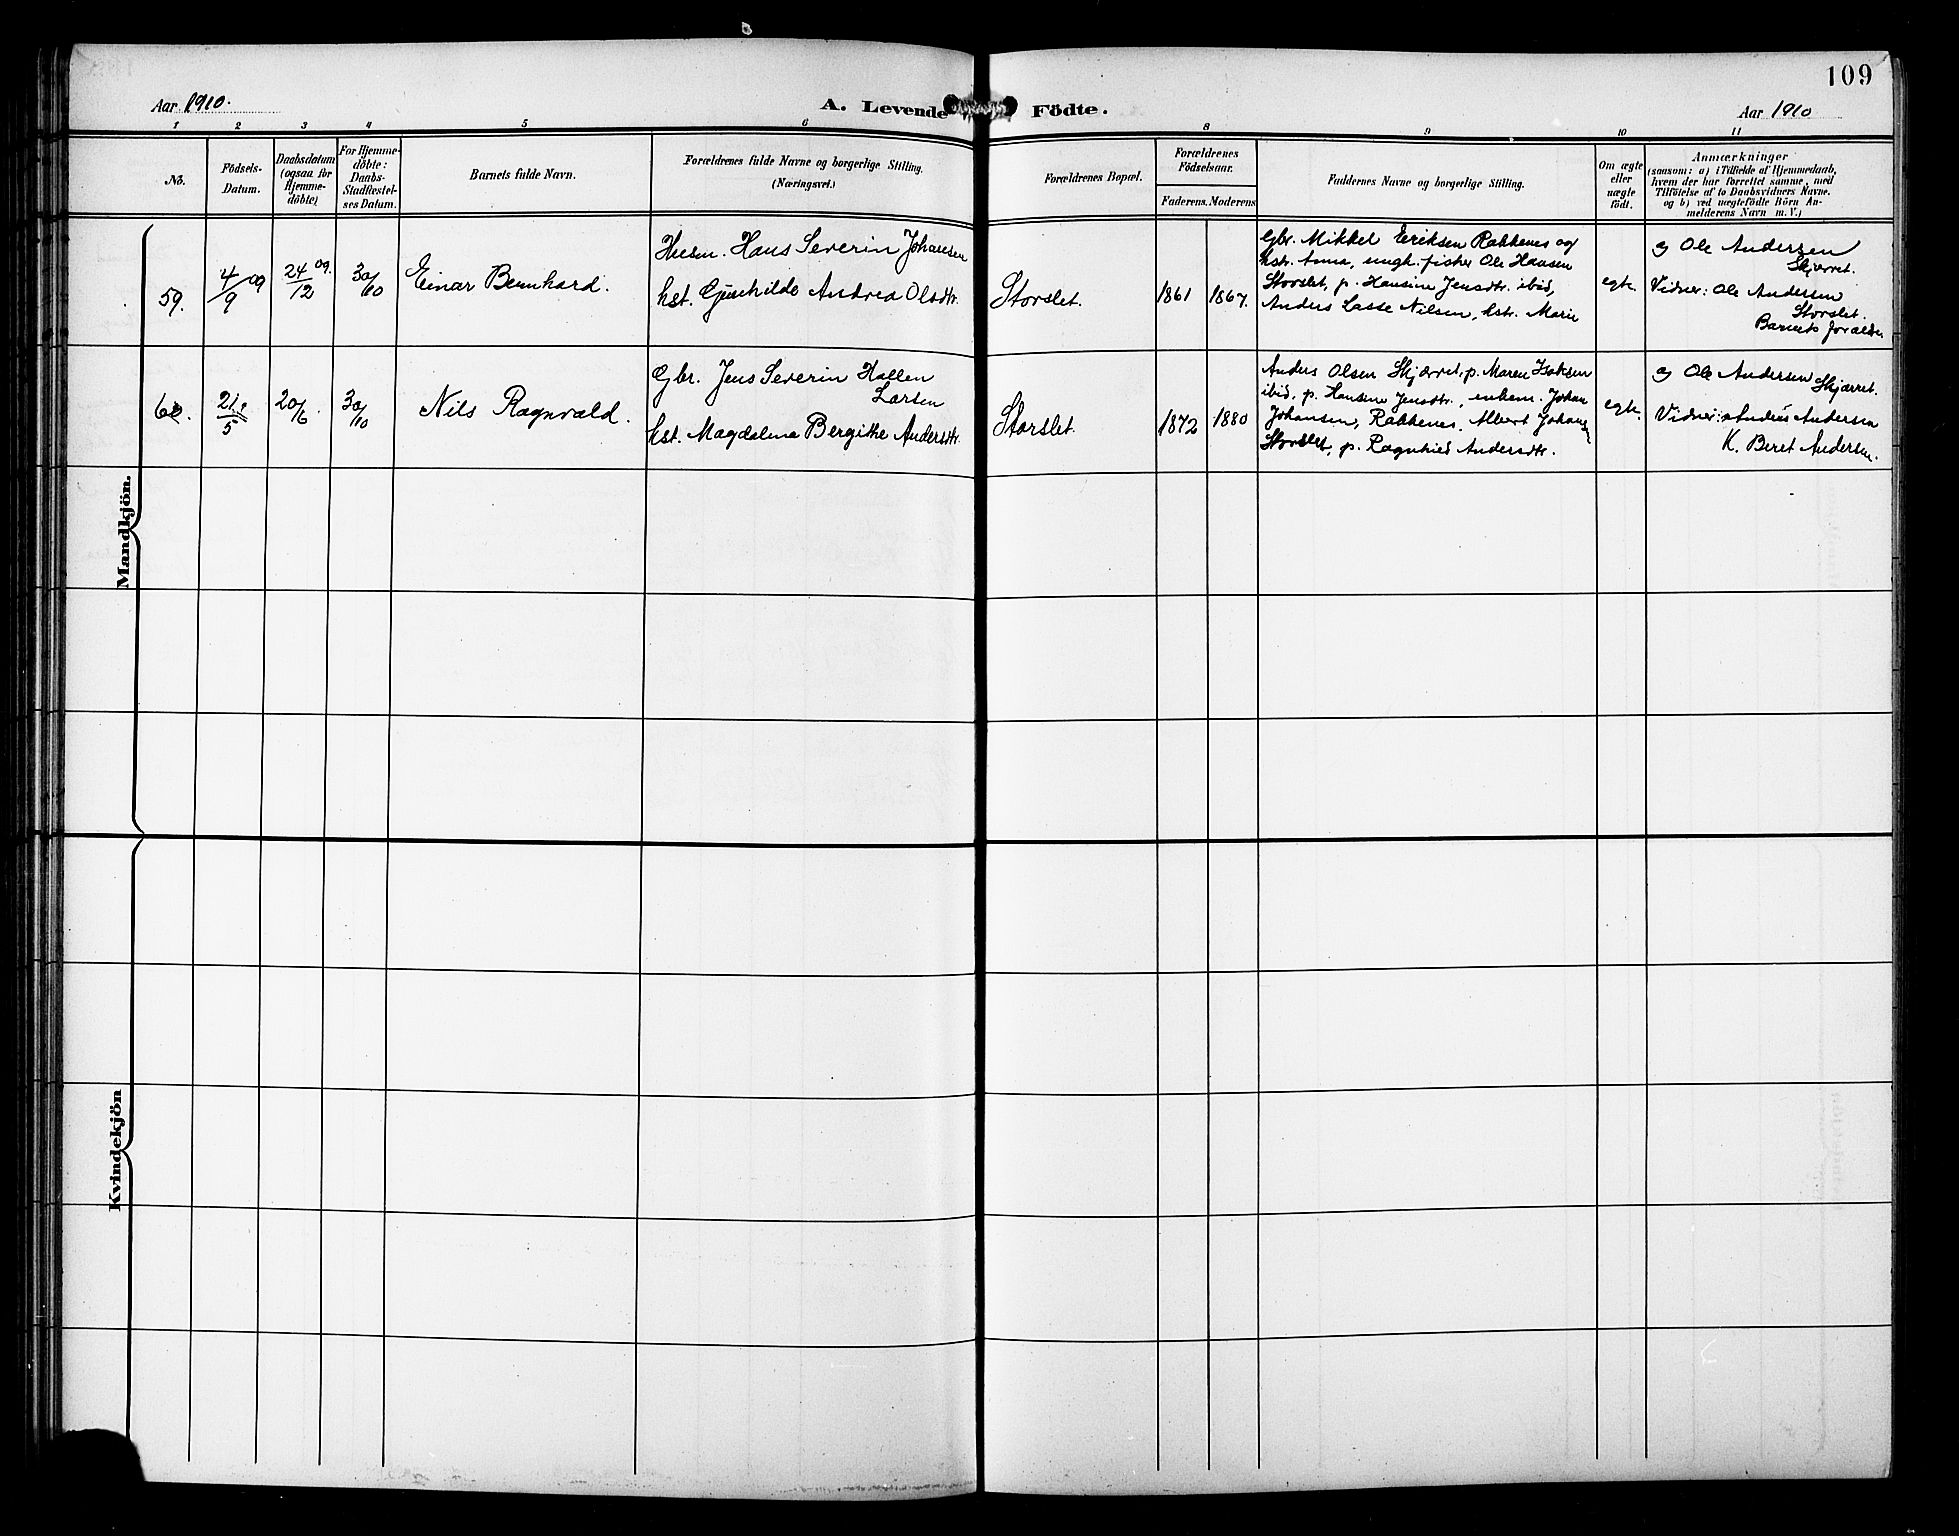 109
Aar 1910.
A. Levende Födte.
Aar 1910
1 2 3 4 5 6 8 9 10 11
No.
Födsels-
Datum.
Daabsdatum
(ogsaa for
Hjemme-
döbte)
For Hjemme-
döbte:
Daabs-
Stadfæstel-
ses Datum.
Barnets fulde Navn.
Forældrenes fulde Navne og borgerlige Stilling.
(Næringsvei.)
Forældrenes Bopæl.
Forældrenes
Födselsaar.
Faderens. Moderens
Faddernes Navne og borgerlige Stilling.
Om ægte
eller
uægte
födt.
Anmærkninger
(saasom: a) i Tilfælde af Hjemmedaab,
hvem der har forrettet samme, med
Tilföielse af to Daabsvidners Navne.
og b) ved uægtefödte Börn An-
melderens Navn m. V.)
Mandkjön.
59.
4/9 09
24/12 09.
30/10
Einar Bernhard.
Husm. Hans Severin Johansen
hst. Gunhilde Andrea Olsdtr.
Storslet.
1861
1867.
Gbr. Mikkel Eriksen Rakkenes og
hstr. Anna, ungk. fisker Ole Hansen
Storslet, p. Hansine Jensdtr. ibid,
Anders Lasse Nilsen, hstr. Marie
egte.
a Ole Andersen
Skjærret.
Vidner: Ole Andersen
Storslet.
Barnets forældre
60.
21/5
20/6.
30/10
Nils Ragnvald.
Gbr. Jens Severin Hallen
Larsen
hst. Magdalena Bergithe Andersdtr.
Storslet.
1872
1880
Anders Olsen Skjærret, p. Maren Isaksen
ibid, p. Hansine Jensdtr., enkem. Johan
Johansen, Rakkenes, Albert Johansen
Storslet, p. Ragnhild Andersdtr.
egte.
a Ole Andersen Skjærret.
Vidner: Anders Andersen
K. Beret Andersen.
Kvindekjön